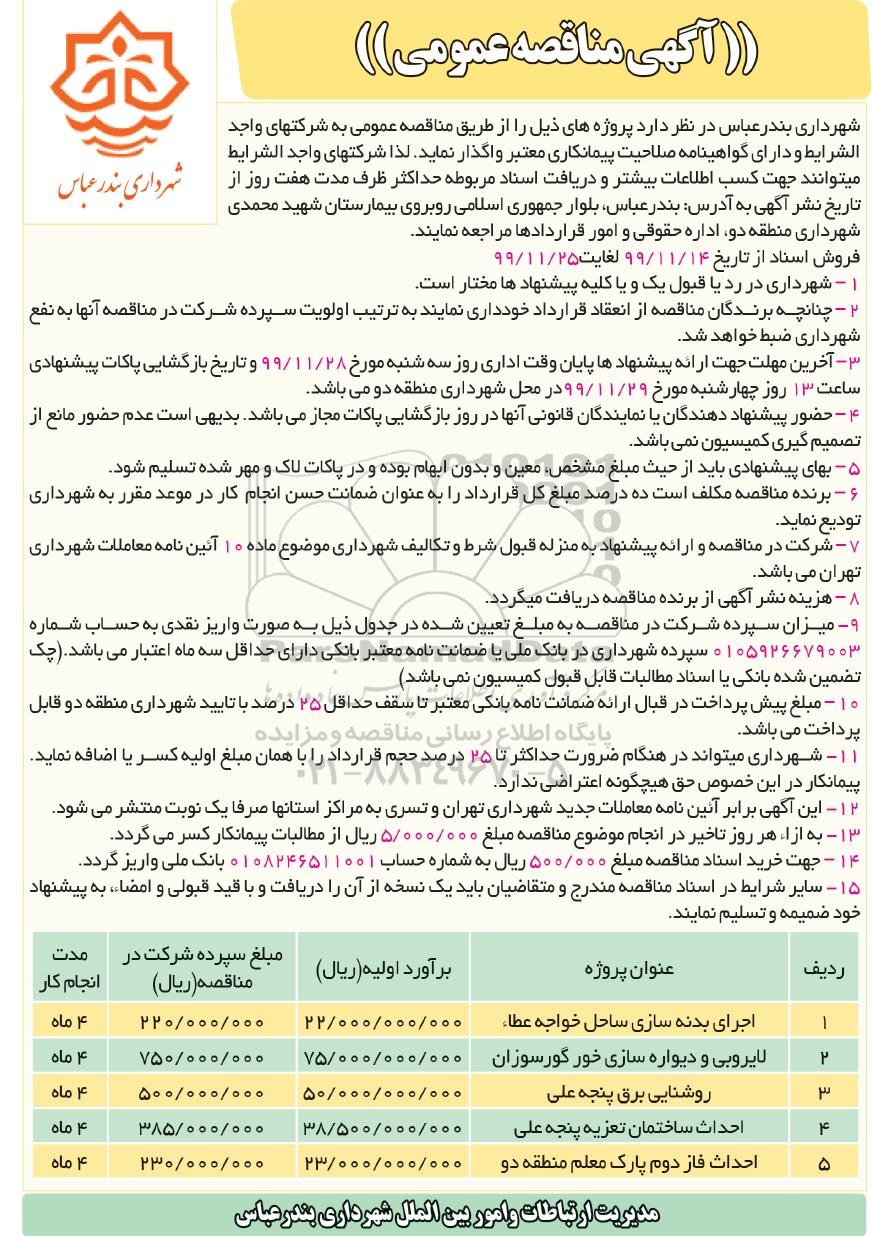 ((آگهی مناقصه عمومی))
شهرداری بندرعباس
شهرداری بندرعباس در نظر دارد پروژه های ذیل را از طریق مناقصه عمومی به شرکتهای واجد
الشرایط و دارای گواهینامه صلاحیت پیمانکاری معتبر واگذار نماید. لذا شرکتهای واجد الشرایط
میتوانند جهت کسب اطلاعات بیشتر و دریافت اسناد مربوطه حداکثر ظرف مدت هفت روز از
تاریخ نشر آگهی به آدرس: بندرعباس، بلوار جمهوری اسلامی روبروی بیمارستان شهید محمدی
شهرداری منطقه دو، اداره حقوقی و امور قراردادها مراجعه نمایند.
فروش اسناد از تاریخ ۹۹/۱۱/۱۴ لغایت۹۹/۱۱/۲۵
۱ – شهرداری در رد یا قبول یک و یا کلیه پیشنهاد ها مختار است.
۲ – چنانچه برندگان مناقصه از انعقاد قرارداد خودداری نمایند به ترتیب اولویت سپرده شرکت در مناقصه آنها به نفع
شهرداری ضبط خواهد شد.
۳– آخرین مهلت جهت ارائه پیشنهاد ها پایان وقت اداری روز سه شنبه مورخ ۹۹/۱۱/۲۸ و تاریخ بازگشایی پاکات پیشنهادی
ساعت ۱۳ روز چهارشنبه مورخ ۹۹/۱۱/۲۹در محل شهرداری منطقه دو می باشد.
۴ – حضور پیشنهاد دهندگان یا نمایندگان قانونی آنها در روز بازگشایی پاکات مجاز می باشد. بدیهی است عدم حضور مانع از
تصمیم گیری کمیسیون نمی باشد.
۵ – بهای پیشنهادی باید از حیث مبلغ مشخص، معین و بدون ابهام بوده و در پاکات لاک و مهر شده تسلیم شود.
۶ – برنده مناقصه مکلف است ده درصد مبلغ کل قرارداد را به عنوان ضمانت حسن انجام کار در موعد مقرر به شهرداری
تودیع نماید.
۷ – شرکت در مناقصه و ارائه پیشنهاد به منزله قبول شرط و تکالیف شهرداری موضوع ماده ۱۰ آئین نامه معاملات شهرداری
تهران می باشد.
۸ – هزینه نشر آگهی از برنده مناقصه دریافت میگردد.
۹- میزان سپرده شرکت در مناقصه به مبلغ تعیین شده در جدول ذیل به صورت واریز نقدی به حساب شماره
۰۱۰۵۹۲۶۶۷۹۰۰۳ سپرده شهرداری در بانک ملی یا ضمانت نامه معتبر بانکی دارای حداقل سه ماه اعتبار می باشد.(چک
تضمین شده بانکی یا اسناد مطالبات قابل قبول کمیسیون نمی باشد)
۱۰ – مبلغ پیش پرداخت در قبال ارائه ضمانت نامه بانکی معتبر تا سقف حداقل ۲۵ درصد با تایید شهرداری منطقه دو قابل
پرداخت می باشد.
۱۱- شهرداری میتواند در هنگام ضرورت حداکثر تا ۲۵ درصد حجم قرارداد را با همان مبلغ اولیه کسر یا اضافه نماید.
پیمانکار در این خصوص حق هیچگونه اعتراضی ندارد.
۱۲- این آگهی برابر آئین نامه معاملات جدید شهرداری تهران و تسری به مراکز استانها صرفا یک نوبت منتشر می شود.
۱۳- به ازاء هر روز تاخیر در انجام موضوع مناقصه مبلغ ۵/۰۰۰/۰۰۰ ریال از مطالبات پیمانکار کسر می گردد.
۱۴ – جهت خرید اسناد مناقصه مبلغ ۵۰۰/۰۰۰ ریال به شماره حساب ۰۱۰۸۲۴۶۵۱۱۰۰۱ بانک ملی واریز گردد.
۱۵- سایر شرایط در اسناد مناقصه مندرج و متقاضیان باید یک نسخه از آن را دریافت و با قید قبولی و امضاء، به پیشنهاد
خود ضمیمه و تسلیم نمایند.
ParsNamadData
پایگاه اطلاع رسانی مناقصه و مزایده
۰۲۱-۸۸۳۴۹۶۷۰-۵
ردیف عنوان پروژه برآورد اولیه(ریال) مبلغ سپرده شرکت در مناقصه(ریال) مدت انجام کار
۱ اجرای بدنه سازی ساحل خواجه عطاء ۲۲/۰۰۰/۰۰۰/۰۰۰ ۲۲۰/۰۰۰/۰۰۰ ۴ ماه
۲ لایروبی و دیواره سازی خور گورسوزان ۷۵/۰۰۰/۰۰۰/۰۰۰ ۷۵۰/۰۰۰/۰۰۰ ۴ ماه
۳ روشنایی برق پنجه علی ۵۰/۰۰۰/۰۰۰/۰۰۰ ۵۰۰/۰۰۰/۰۰۰ ۴ ماه
۴ احداث ساختمان تعزیه پنجه علی ۳۸/۵۰۰/۰۰۰/۰۰۰ ۳۸۵/۰۰۰/۰۰۰ ۴ ماه
۵ احداث فاز دوم پارک معلم منطقه دو ۲۳/۰۰۰/۰۰۰/۰۰۰ ۲۳۰/۰۰۰/۰۰۰ ۴ ماه
مدیریت ارتباطات وامور بین الملل شهرداری بندرعباس